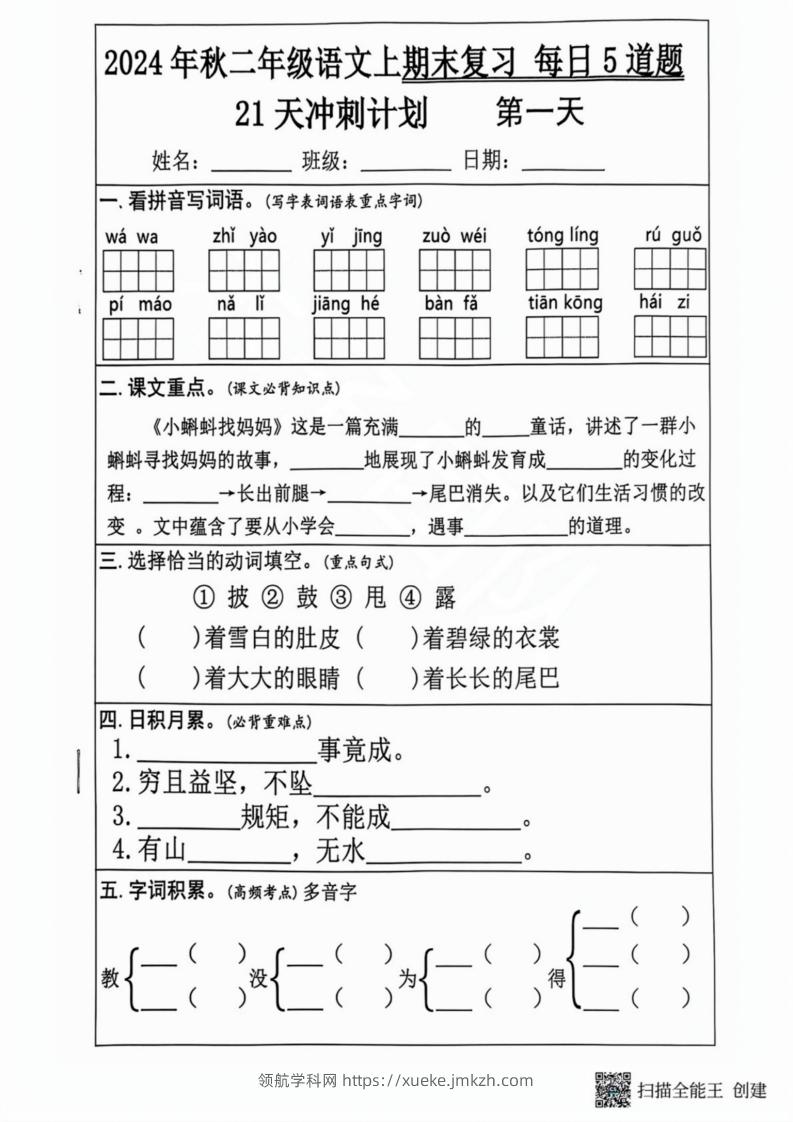 2024 年秋二年级语文上期末复习 每日 5 道题
21 天冲刺计划 第一天
姓名：______ 班级：______ 日期：______
一.看拼音写词语。(写字表词语表重点字词)
wá wa zhǐ yào yǐ jīng zuò wéi tóng líng rú guǒ
pí máo nǎ lǐ jiāng hé bàn fǎ tiān kōng hái zi
二.课文重点。(课文必背知识点)
《小蝌蚪找妈妈》这是一篇充满______的_____童话，讲述了一群小
蝌蚪寻找妈妈的故事，_______地展现了小蝌蚪发育成_______的变化过
程：_______→长出前腿→________→尾巴消失。以及它们生活习惯的改
变 。文中蕴含了要从小学会_______，遇事__________的道理。
三.选择恰当的动词填空。(重点句式)
① 披 ② 鼓 ③ 甩 ④ 露
( )着雪白的肚皮 ( )着碧绿的衣裳
( )着大大的眼睛 ( )着长长的尾巴
四.日积月累。(必背重难点)
1.______________事竟成。
2.穷且益坚，不坠_____________。
3.________规矩，不能成__________。
4.有山________，无水____________。
五.字词积累。(高频考点)多音字
___( )
___( ) ___( ) ___( ) ___( )
教 没 为 得
___( ) ___( ) ___( ) ___( )
领航学科网 https://xueke.jmkzh.com
扫描全能王 创建